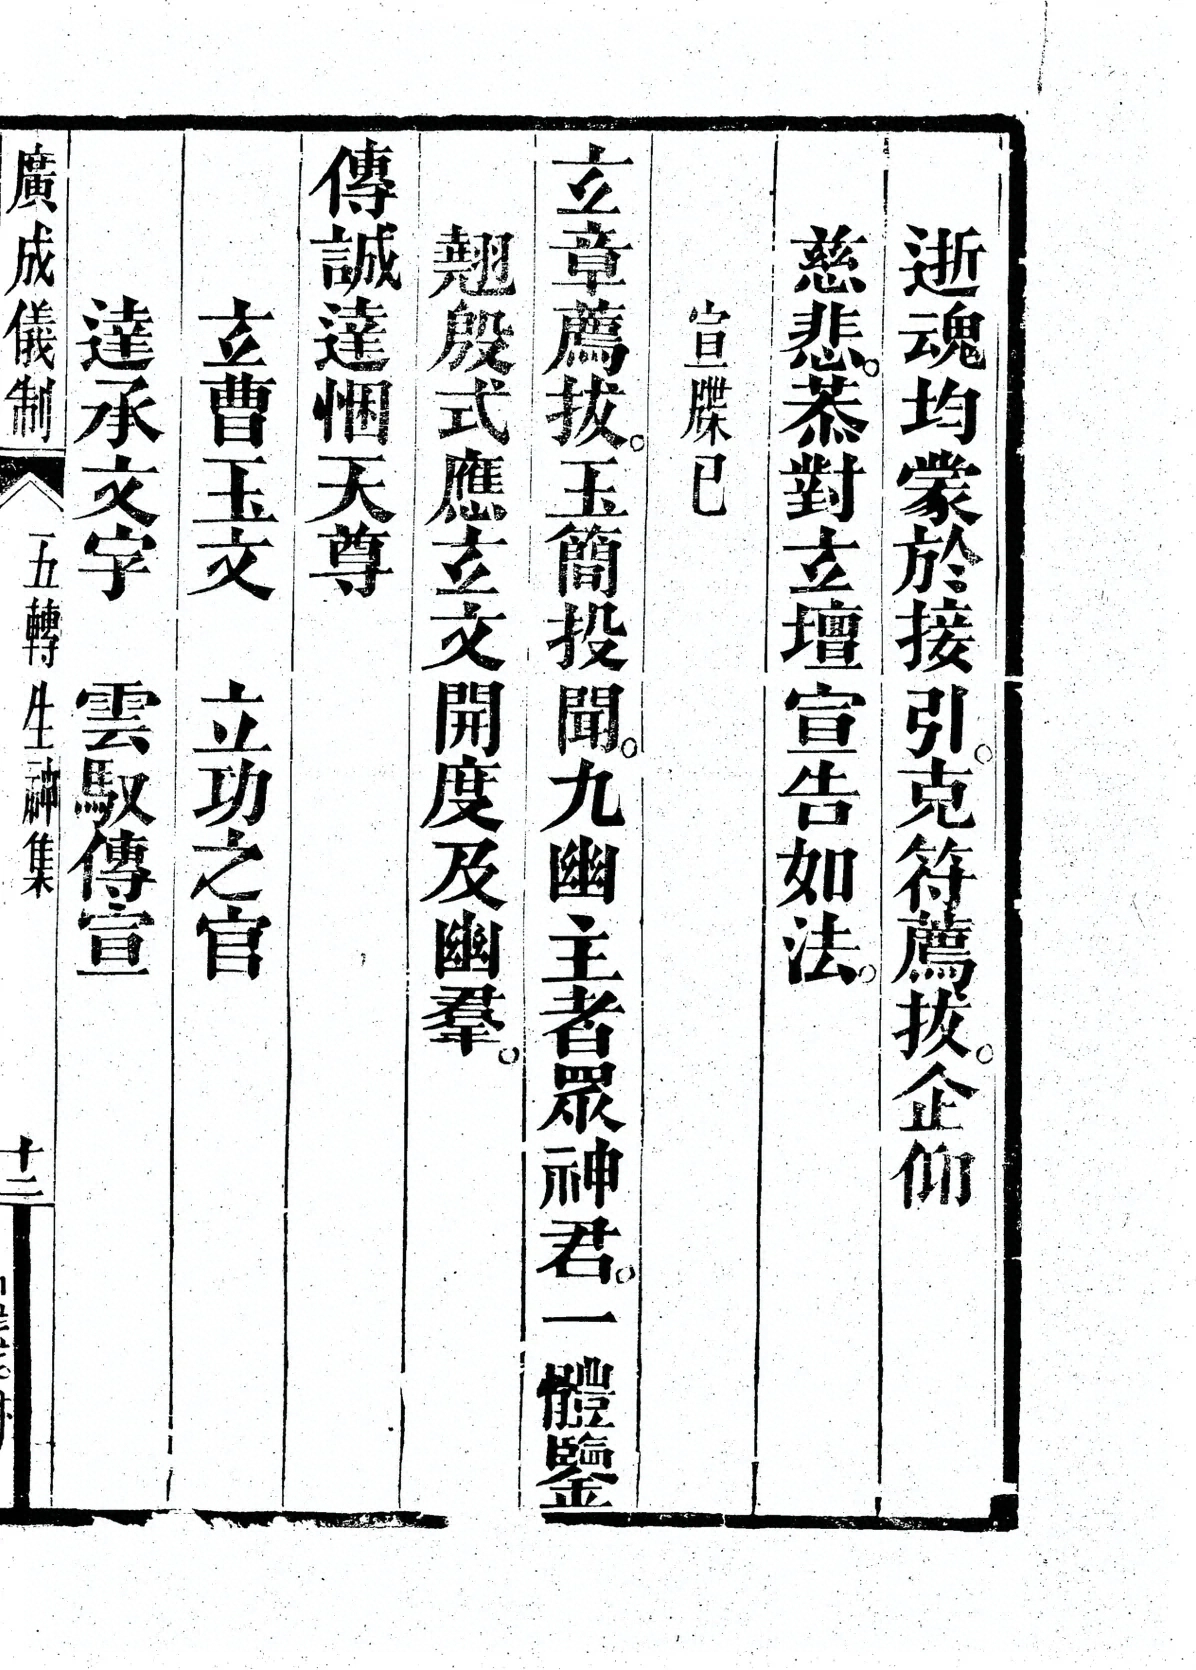 逝魂均蒙於接引。克符薦拔。企仰
慈悲。恭對玄壇宣告如法。
宣牒已
玄章薦拔。玉簡投聞。九幽主者眾神君。一體鑒
翹殷式應玄文開度及幽羣。
傳誠達悃天尊
玄曹玉文　立功之官
達承文字　雲馭傳宣
廣成儀制　五轉生神集　十二